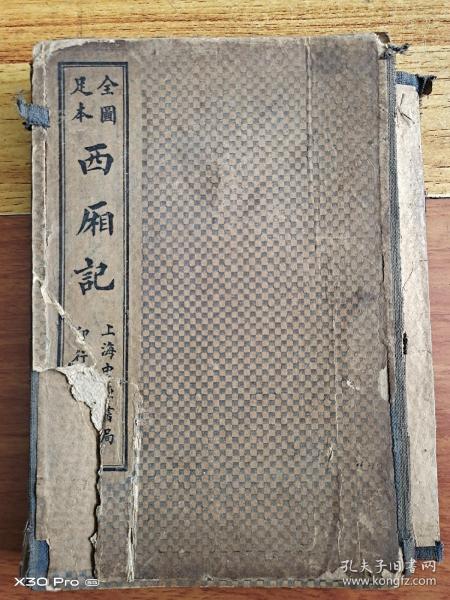 全圖
足本
西厢記
上海中
書局
印行
X30 Pro 5G
孔夫子旧书网
www.kongfz.com